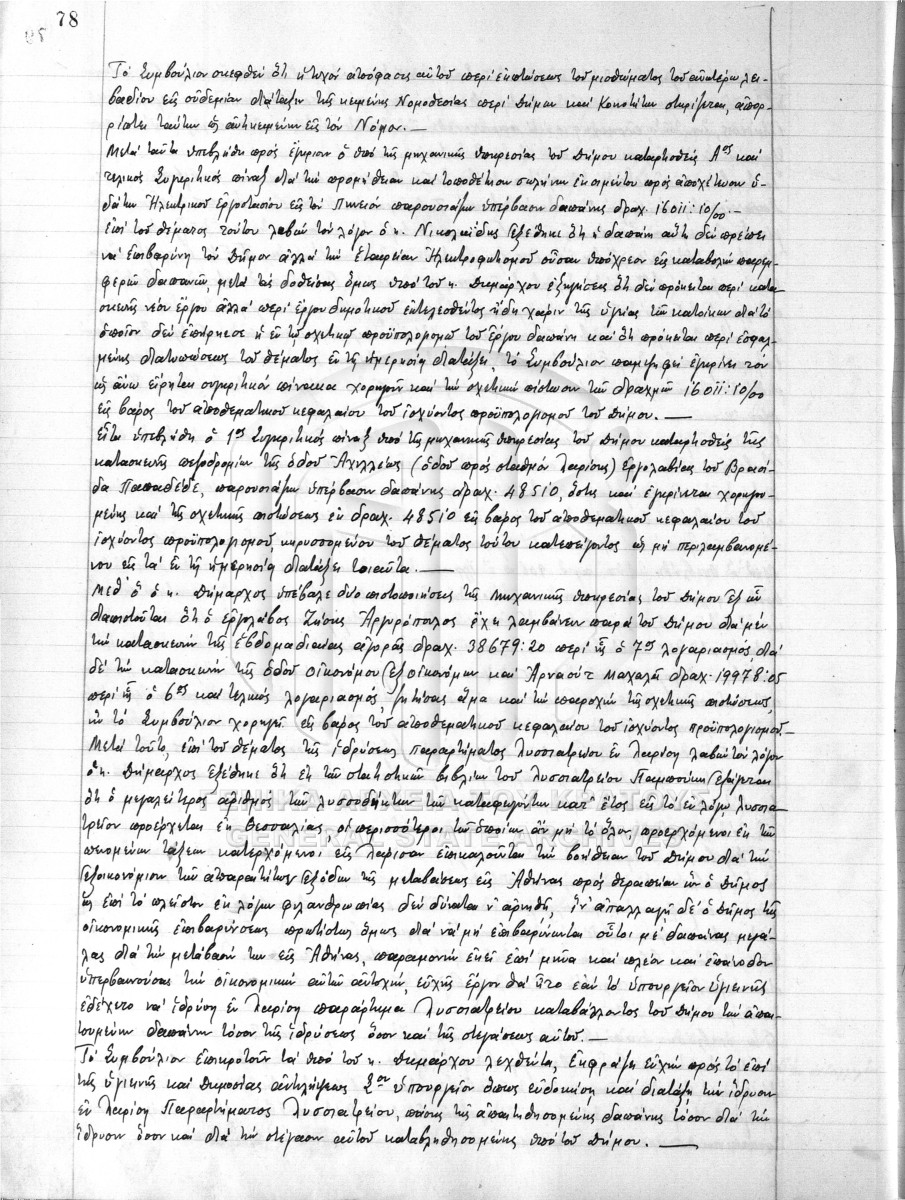 78
Τό Συμβούλιον σκεφθέν ὅτι ἡ τυχόν ἀπόφασις αὐτοῦ περί ἐκπτώσεως τοῦ μισθώματος τοῦ ἀνωτέρω λει-
βαδίου εἰς οὐδεμίαν διάταξιν τῆς κειμένης Νομοθεσίας περί Δήμων καί Κοινοτήτων στηρίζεται, ἀπορ-
ρίπτει ταύτην ὡς ἀντικειμένην εἰς τόν Νόμον.—
Μετά ταῦτα ὑπεβλήθη πρός ἔγκρισιν ὁ ὑπό τῆς μηχανικῆς ὑπηρεσίας τοῦ Δήμου καταρτισθείς Αος καί
τελικός Συγκριτικός πίναξ διά τήν προμήθειαν καί τοποθέτησιν σωλήνων ἐκ σιμέντου πρός ἀποχέτευσιν ὑ-
δάτων Ἠλεκτρικοῦ Ἐργοστασίου εἰς τόν Πηνειόν παρουσιάζων ὑπέρβασιν δαπάνης δραχ. 16011:10/00.—
Ἐπί τοῦ θέματος τούτου λαβών τόν λόγον ὁ κ. Νικολαΐδης ἐξέθηκε ὅτι ἡ δαπάνη αὕτη δέν πρέπει
νά ἐπιβαρύνῃ τόν Δῆμον ἀλλά τήν Ἑταιρείαν Ἠλεκτροφωτισμοῦ οὖσαν ὑπόχρεον εἰς καταβολήν παρεμ-
φερῶν δαπανῶν, μετά τάς δοθείσας ὅμως ὑπό τοῦ κ. Δημάρχου ἐξηγήσεις ὅτι δέν πρόκειται περί κατα-
σκευῆς νέου ἔργου ἀλλά περί ἔργου δημοτικοῦ ἐκτελεσθέντος ἤδη χάριν τῆς ὑγείας τῶν κατοίκων διά τό
ὁποῖον δέν ἐπήρκεσε ἡ ἐν τῷ σχετικῷ προϋπολογισμῷ τοῦ ἔργου δαπάνη καί ὅτι πρόκειται περί ἐσφαλ-
μένης διατυπώσεως τοῦ θέματος ἐν τῇ ἡμερησίᾳ διατάξει, τό Συμβούλιον παμψηφεί ἐγκρίνει τόν
ὡς ἄνω εἴρηται συγκριτικόν πίνακα χορηγοῦν καί τήν σχετικήν πίστωσιν τῶν δραχμῶν 16011:10/00
εἰς βάρος τοῦ ἀποθεματικοῦ κεφαλαίου τοῦ ἰσχύοντος προϋπολογισμοῦ τοῦ Δήμου.—
Εἶτα ὑπεβλήθη ὁ 1ος Συγκριτικός πίναξ ὑπό τῆς μηχανικῆς ὑπηρεσίας τοῦ Δήμου καταρτισθείς τῆς
κατασκευῆς πεζοδρομίων τῆς ὁδοῦ Ἀχιλλέως (ὁδοῦ πρός σταθμόν Λαρίσης) ἐργολαβίας τοῦ Βρασί-
δα Παπαδέδε, παρουσιάζων ὑπέρβασιν δαπάνης δραχ. 48510, ὅστις καί ἐγκρίνεται χορηγου-
μένης καί τῆς σχετικῆς πιστώσεως ἐκ δραχ. 48510 εἰς βάρος τοῦ ἀποθεματικοῦ κεφαλαίου τοῦ
ἰσχύοντος προϋπολογισμοῦ, κηρυσσομένου τοῦ θέματος τούτου κατεπείγοντος ὡς μή περιλαμβανομέ-
νου εἰς τά ἐν τῇ ἡμερησίᾳ διατάξει τοιαῦτα.—
Μεθ' ὅ ὁ κ. Δήμαρχος ὑπέβαλε δύο πιστοποιήσεις τῆς Μηχανικῆς ὑπηρεσίας τοῦ Δήμου ἐξ ὧν
διαπιστοῦται ὅτι ὁ ἐργολάβος Ζήσης Ἀργυρόπουλος ἔχει λαμβάνειν παρά τοῦ Δήμου διά μέν
τήν κατασκευήν τῆς ἑβδομαδιαίας ἀγορᾶς δραχ. 38679:20 περί ἧς ὁ 7ος λογαριασμός, διά
δέ τήν κατασκευήν τῆς ὁδοῦ Οἰκονόμου ἐξ Οἰκονόμων καί Ἀρναούτ μαχαλᾶ δραχ. 19978:05
περί ἧς ὁ 6ος καί τελικός λογαριασμός, ζητήσας ἅμα καί τήν παροχήν τῆς σχετικῆς πιστώσεως,
ἥν τό Συμβούλιον χορηγεῖ εἰς βάρος τοῦ ἀποθεματικοῦ κεφαλαίου τοῦ ἰσχύοντος προϋπολογισμοῦ.
Μετά τοῦτο, ἐπί τοῦ θέματος τῆς ἱδρύσεως παραρτήματος Λυσσιατρείου ἐν Λαρίσῃ λαβών τόν λόγον
ὁ κ. Δήμαρχος ἐξέθηκε ὅτι ἐκ τῶν στατιστικῶν βιβλίων τοῦ Λυσσιατρείου ἐξάγεται
ὅτι ὁ μεγαλείτερος ἀριθμός τῶν λυσσοδήκτων τῶν καταφευγόντων κατ' ἔτος εἰς τό ἐν λόγῳ Λυσσια-
τρεῖον προέρχεται ἐκ Θεσσαλίας, οἱ περισσότεροι τῶν ὁποίων ἄν μή τό ὅλον, προερχόμενοι ἐκ τῶν
πενομένων τάξεων κατερχόμενοι εἰς Λάρισαν ἐπικαλοῦνται τήν βοήθειαν τοῦ Δήμου διά τήν
ἐξοικονόμησιν τῶν ἀπαραιτήτων ἐξόδων τῆς μεταβάσεως εἰς Ἀθήνας πρός θεραπείαν ἥν ὁ Δῆμος
ὡς ἐπί τό πλεῖστον ἐκ λόγων φιλανθρωπίας δέν δύναται ν' ἀρνηθῇ, ἵν' ἀπαλλαγῇ δέ ὁ Δῆμος τῆς
οἰκονομικῆς ἐπιβαρύνσεως πρωτίστως ὅμως διά νά μή ἐπιβαρύνωνται οὗτοι μέ δαπάνας μεγά-
λας διά τήν μετάβασίν των εἰς Ἀθήνας, παραμονήν ἐκεῖ ἐπί μῆνα καί πλέον καί ἐπάνοδον
ὑπερβαινούσας τήν οἰκονομικήν αὐτῶν ἀντοχήν, εὐχῆς ἔργον θά ἦτο ἐάν τό ὑπουργεῖον ὑγιεινῆς
ἐδέχετο νά ἱδρύσῃ ἐν Λαρίσῃ παράρτημα Λυσσιατρείου καταβάλλοντος τοῦ Δήμου τήν ἀπαι-
τουμένην δαπάνην τόσον τῆς ἱδρύσεως ὅσον καί τῆς στεγάσεως αὐτοῦ.—
Τό Συμβούλιον ἐπικροτοῦν τά ὑπό τοῦ κ. Δημάρχου λεχθέντα, ἐκφράζει εὐχήν πρός τό ἐπί
τῆς ὑγιεινῆς καί Δημοσίας ἀντιλήψεως Σον ὑπουργεῖον ὅπως εὐδοκήσῃ καί διατάξῃ τήν ἵδρυσιν
ἐν Λαρίσῃ Παραρτήματος Λυσσιατρείου, πάσης τῆς ἀπαιτηθησομένης δαπάνης τόσον διά τήν
ἵδρυσιν ὅσον καί διά τήν στέγασιν αὐτοῦ καταβληθησομένης ὑπό τοῦ Δήμου.—
ΓΕΝΙΚΑ ΑΡΧΕΙΑ ΤΟΥ ΚΡΑΤΟΥΣ
GENERAL STATE ARCHIVES